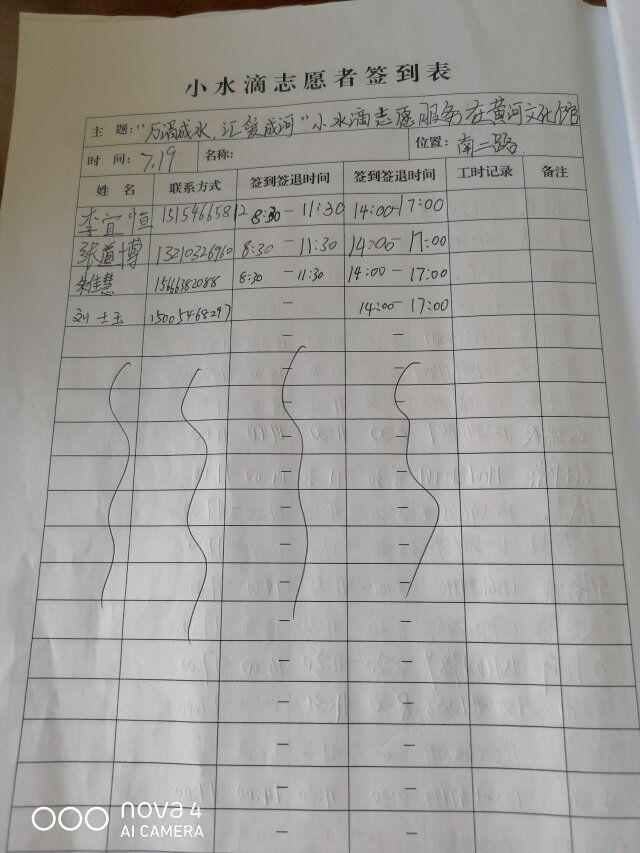 小水滴志愿者签到表
主 题: "万滴成水,汇爱成河"小水滴志愿服务在黄河文化馆
时 间: 7.19 名称: 位置: 南二路
姓 名 联系方式 签到签退时间 签到签退时间 工时记录 备注
李宜恒 15154665812 8:30 - 11:30 14:00 - 17:00
张道博 13210326960 8:30 - 11:30 14:00 - 17:00
朱佳慧 15666382088 8:30 - 11:30 14:00 - 17:00
刘士玉 15005468297 - 14:00 - 17:00
nova 4
AI CAMERA